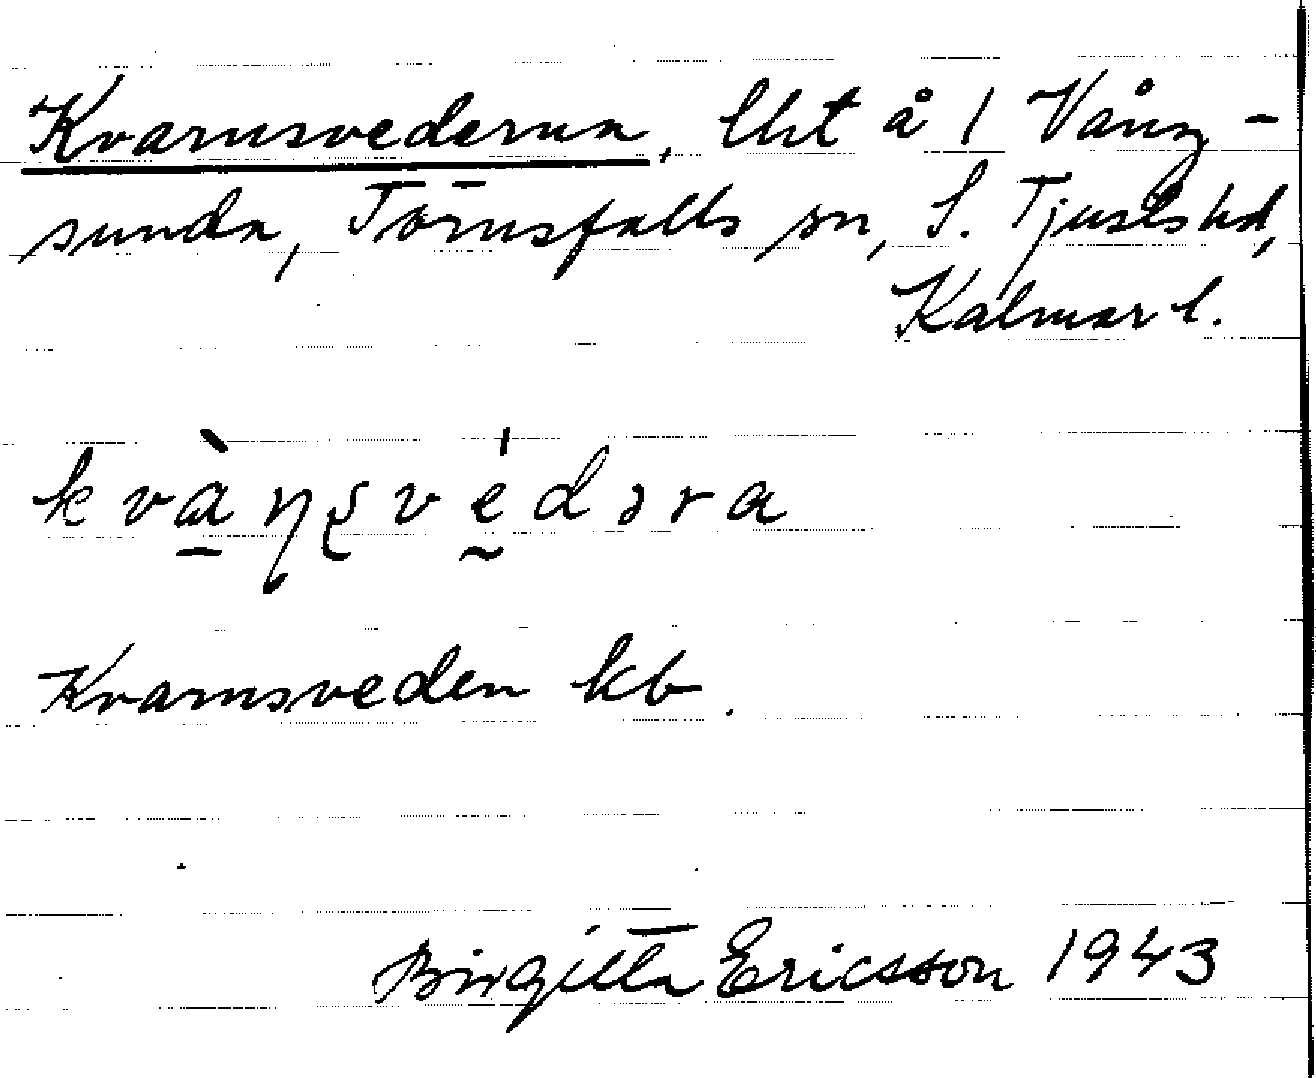 Kvarnsvederna, lht å 1 Vång-
sunda, Törnsfalls sn, S. Tjusts hd,
Kalmar l.
kvàṇṣvédəra
Kvarnsveden kb.
Birgitta Ericsson 1943